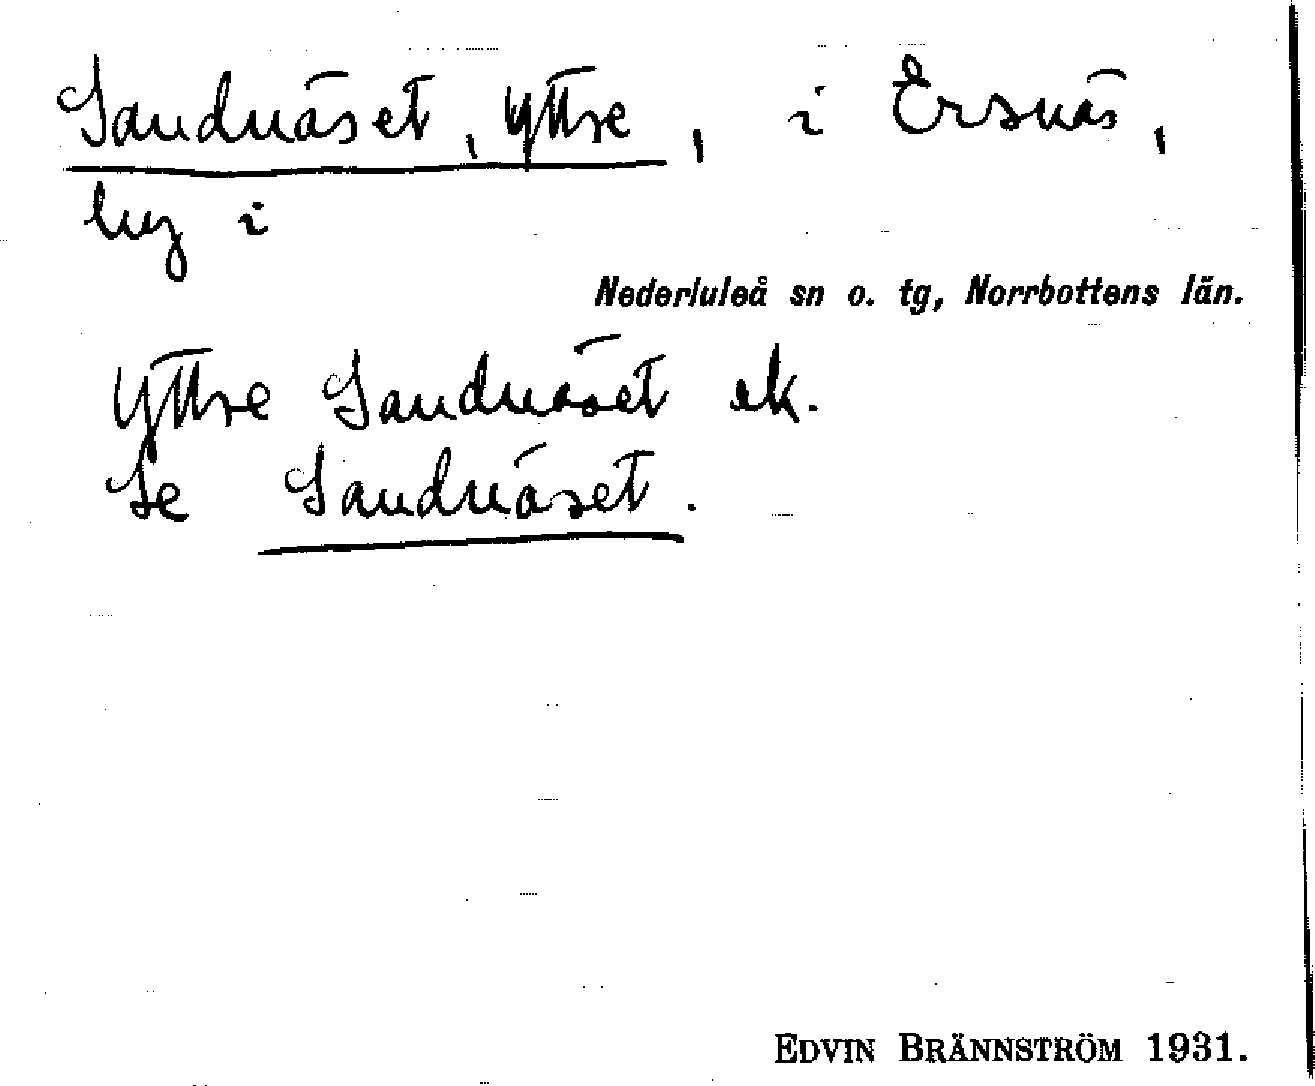 Sandnäset, Yttre, i Ersnäs,
i
Nederluleå sn o. tg, Norrbottens län.
Yttre Sandnäset ek.
Se Sandnäset.
EDVIN BRÄNNSTRÖM 1931.